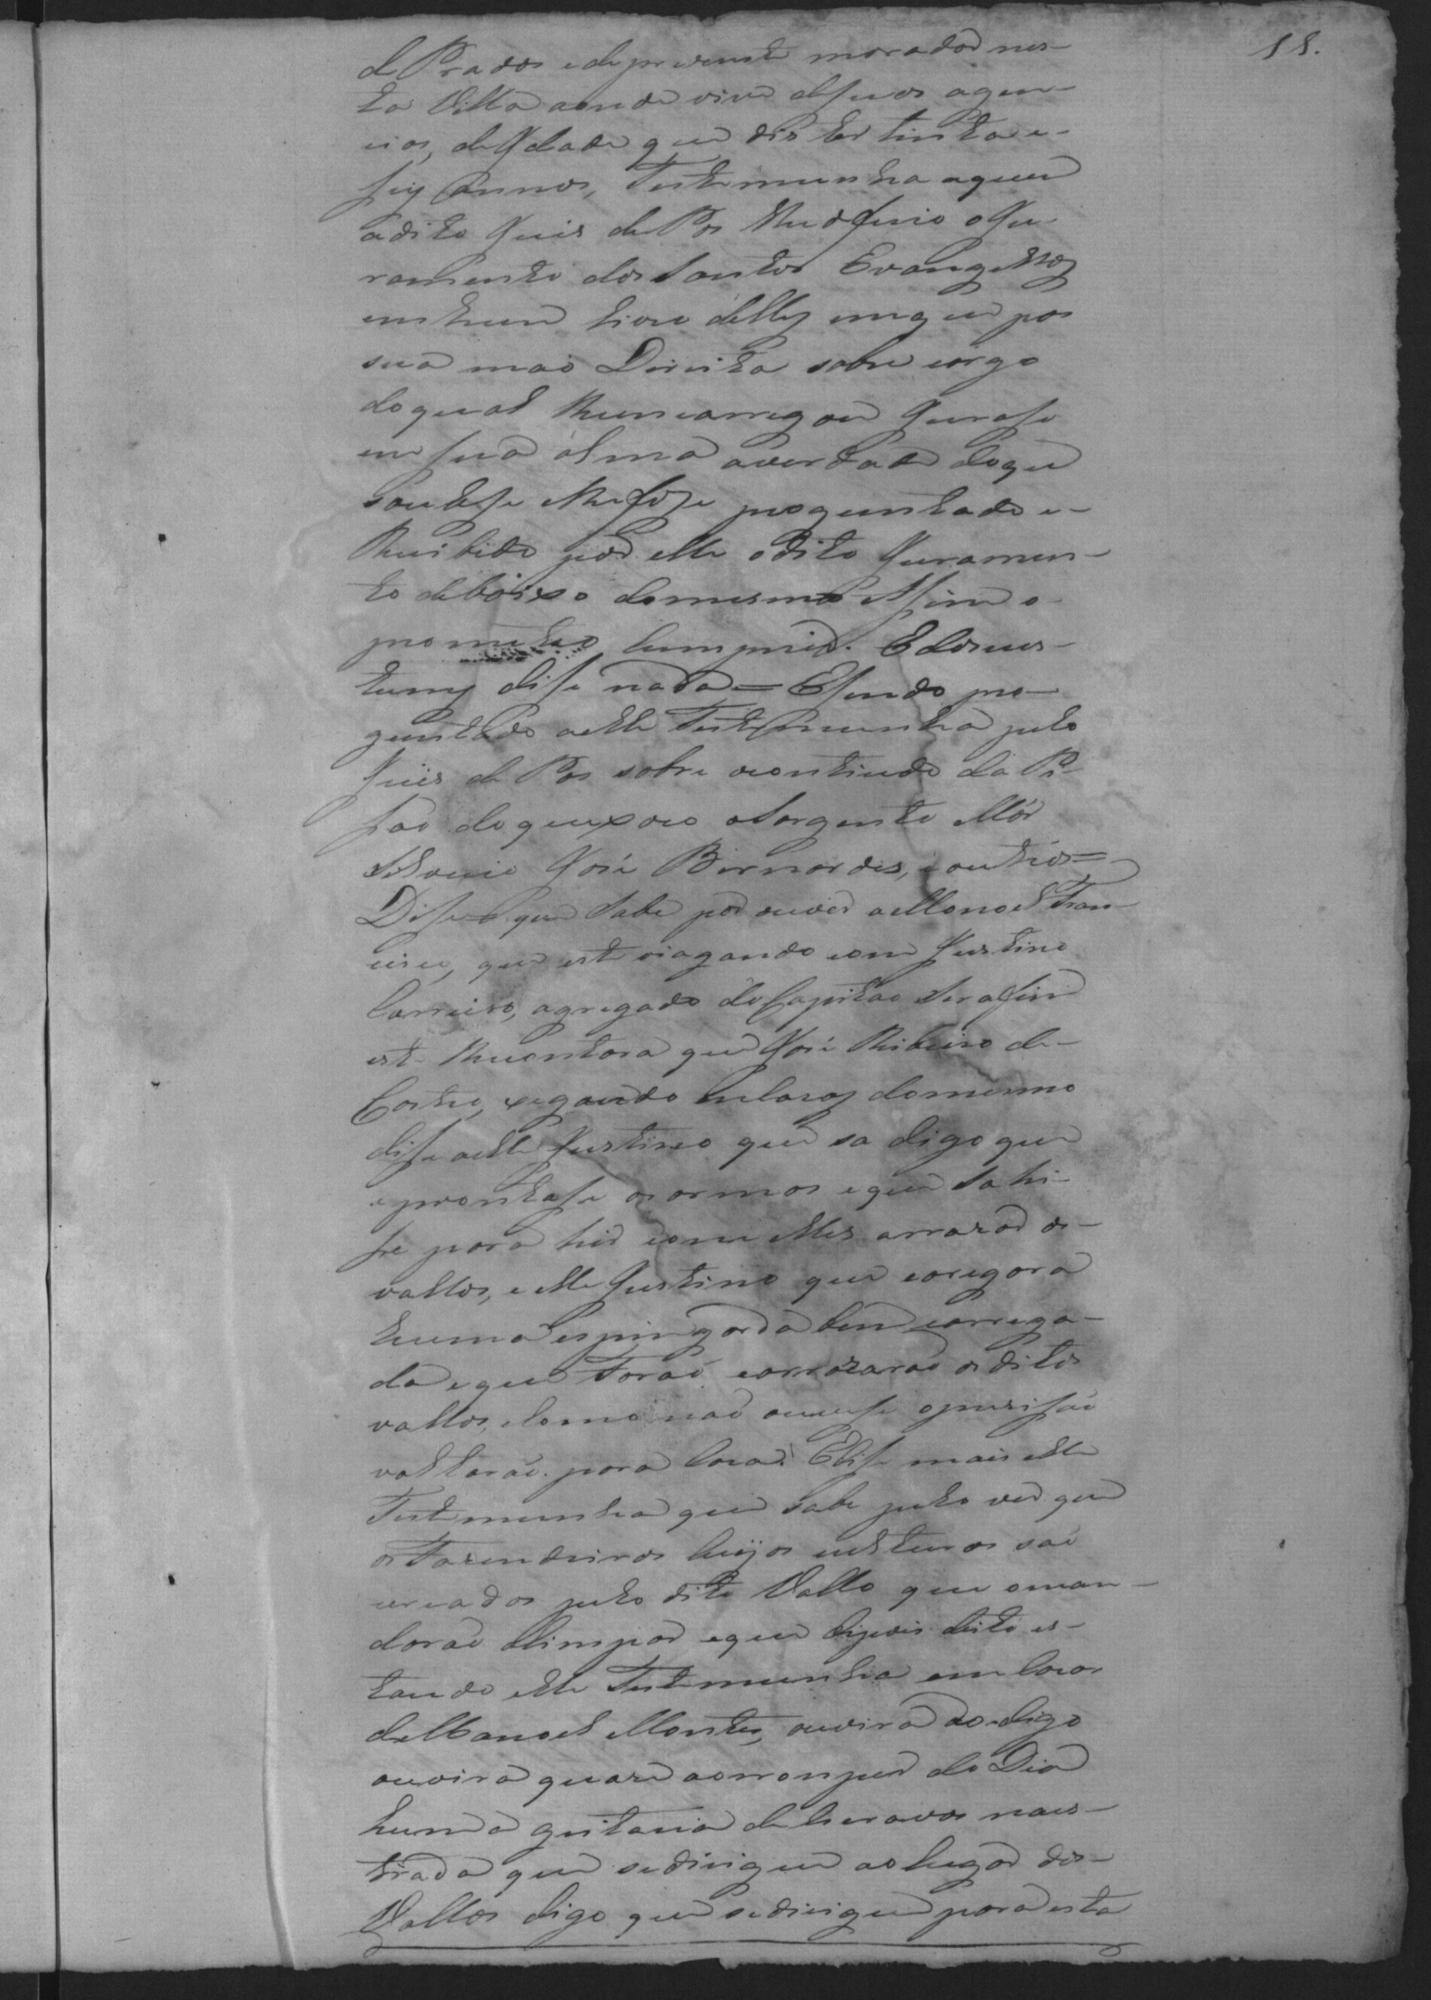 18.
de Prados e de prezente morador nes-
ta Villa aonde vive de suas agen-
cias, de Idade que dis ter trinta e
seis annos, Testemunha aquem
o dito Juis de Pas lhe deferio o Ju-
ramento dos Santos Evangelhos
em hum livro delles em que pos
sua mão Direita sobre cargo
do qual lhe encarregou jurase
em sua alma averdade do que
soubese e lhe fose proguntado e
Recibido por elle o dito Juramen-
to debaixo do mesmo Asim o
prometeo cumprir. E dos cus-
tumes dise nada = E sendo pro-
guntado a elle Testemunha pelo
Juis de Pas sobre o contiudo da Pe-
são de queixoso o Sargento Mór
Silverio José Bernardes, e outros =
Dise que sabe por ouvir a Manoel Fran-
cisco, que este viagando com Justino
Carreiro, agregado do Capitão Serafim
este lhe contara que José Ribeiro de
Castro, xegando em casas do mesmo
dise a elle Justino que sa digo que
aprontase as armas e que sahi-
se para hir com elles arrazar os
vallos, e elle Justino que caregara
huma espingarda bem carrega-
da e que Forão e arrazarão os ditos
vallos, e como não ouvese opozisão
voltarão para Casa. E dise mais elle
Testemunha que sabe pelo ver que
os Fazendeiros cujos culturos são
cercados pelo dito Vallo que o man-
darão alimpar e que depois disto es-
tando elle Testemunha em casa
de Manoel Montes, ouvira ao digo
ouvira quaze ao romper do Dia
huma gritaria de Escravos na es-
trada que se dirigem ao lugar dos
Vallos digo que se dirigem para esta